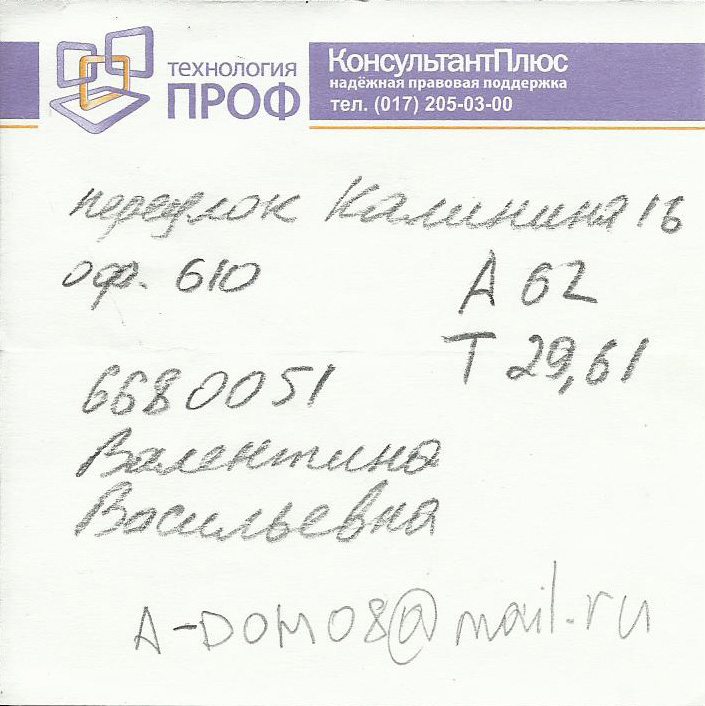 технология
ПРОФ
КонсультантПлюс
надёжная правовая поддержка
тел. (017) 205-03-00
переулок Калинина 16
оф. 610
А 62
Т 29,61
6680051
Валентина
Васильевна
A-DOM08@mail.ru